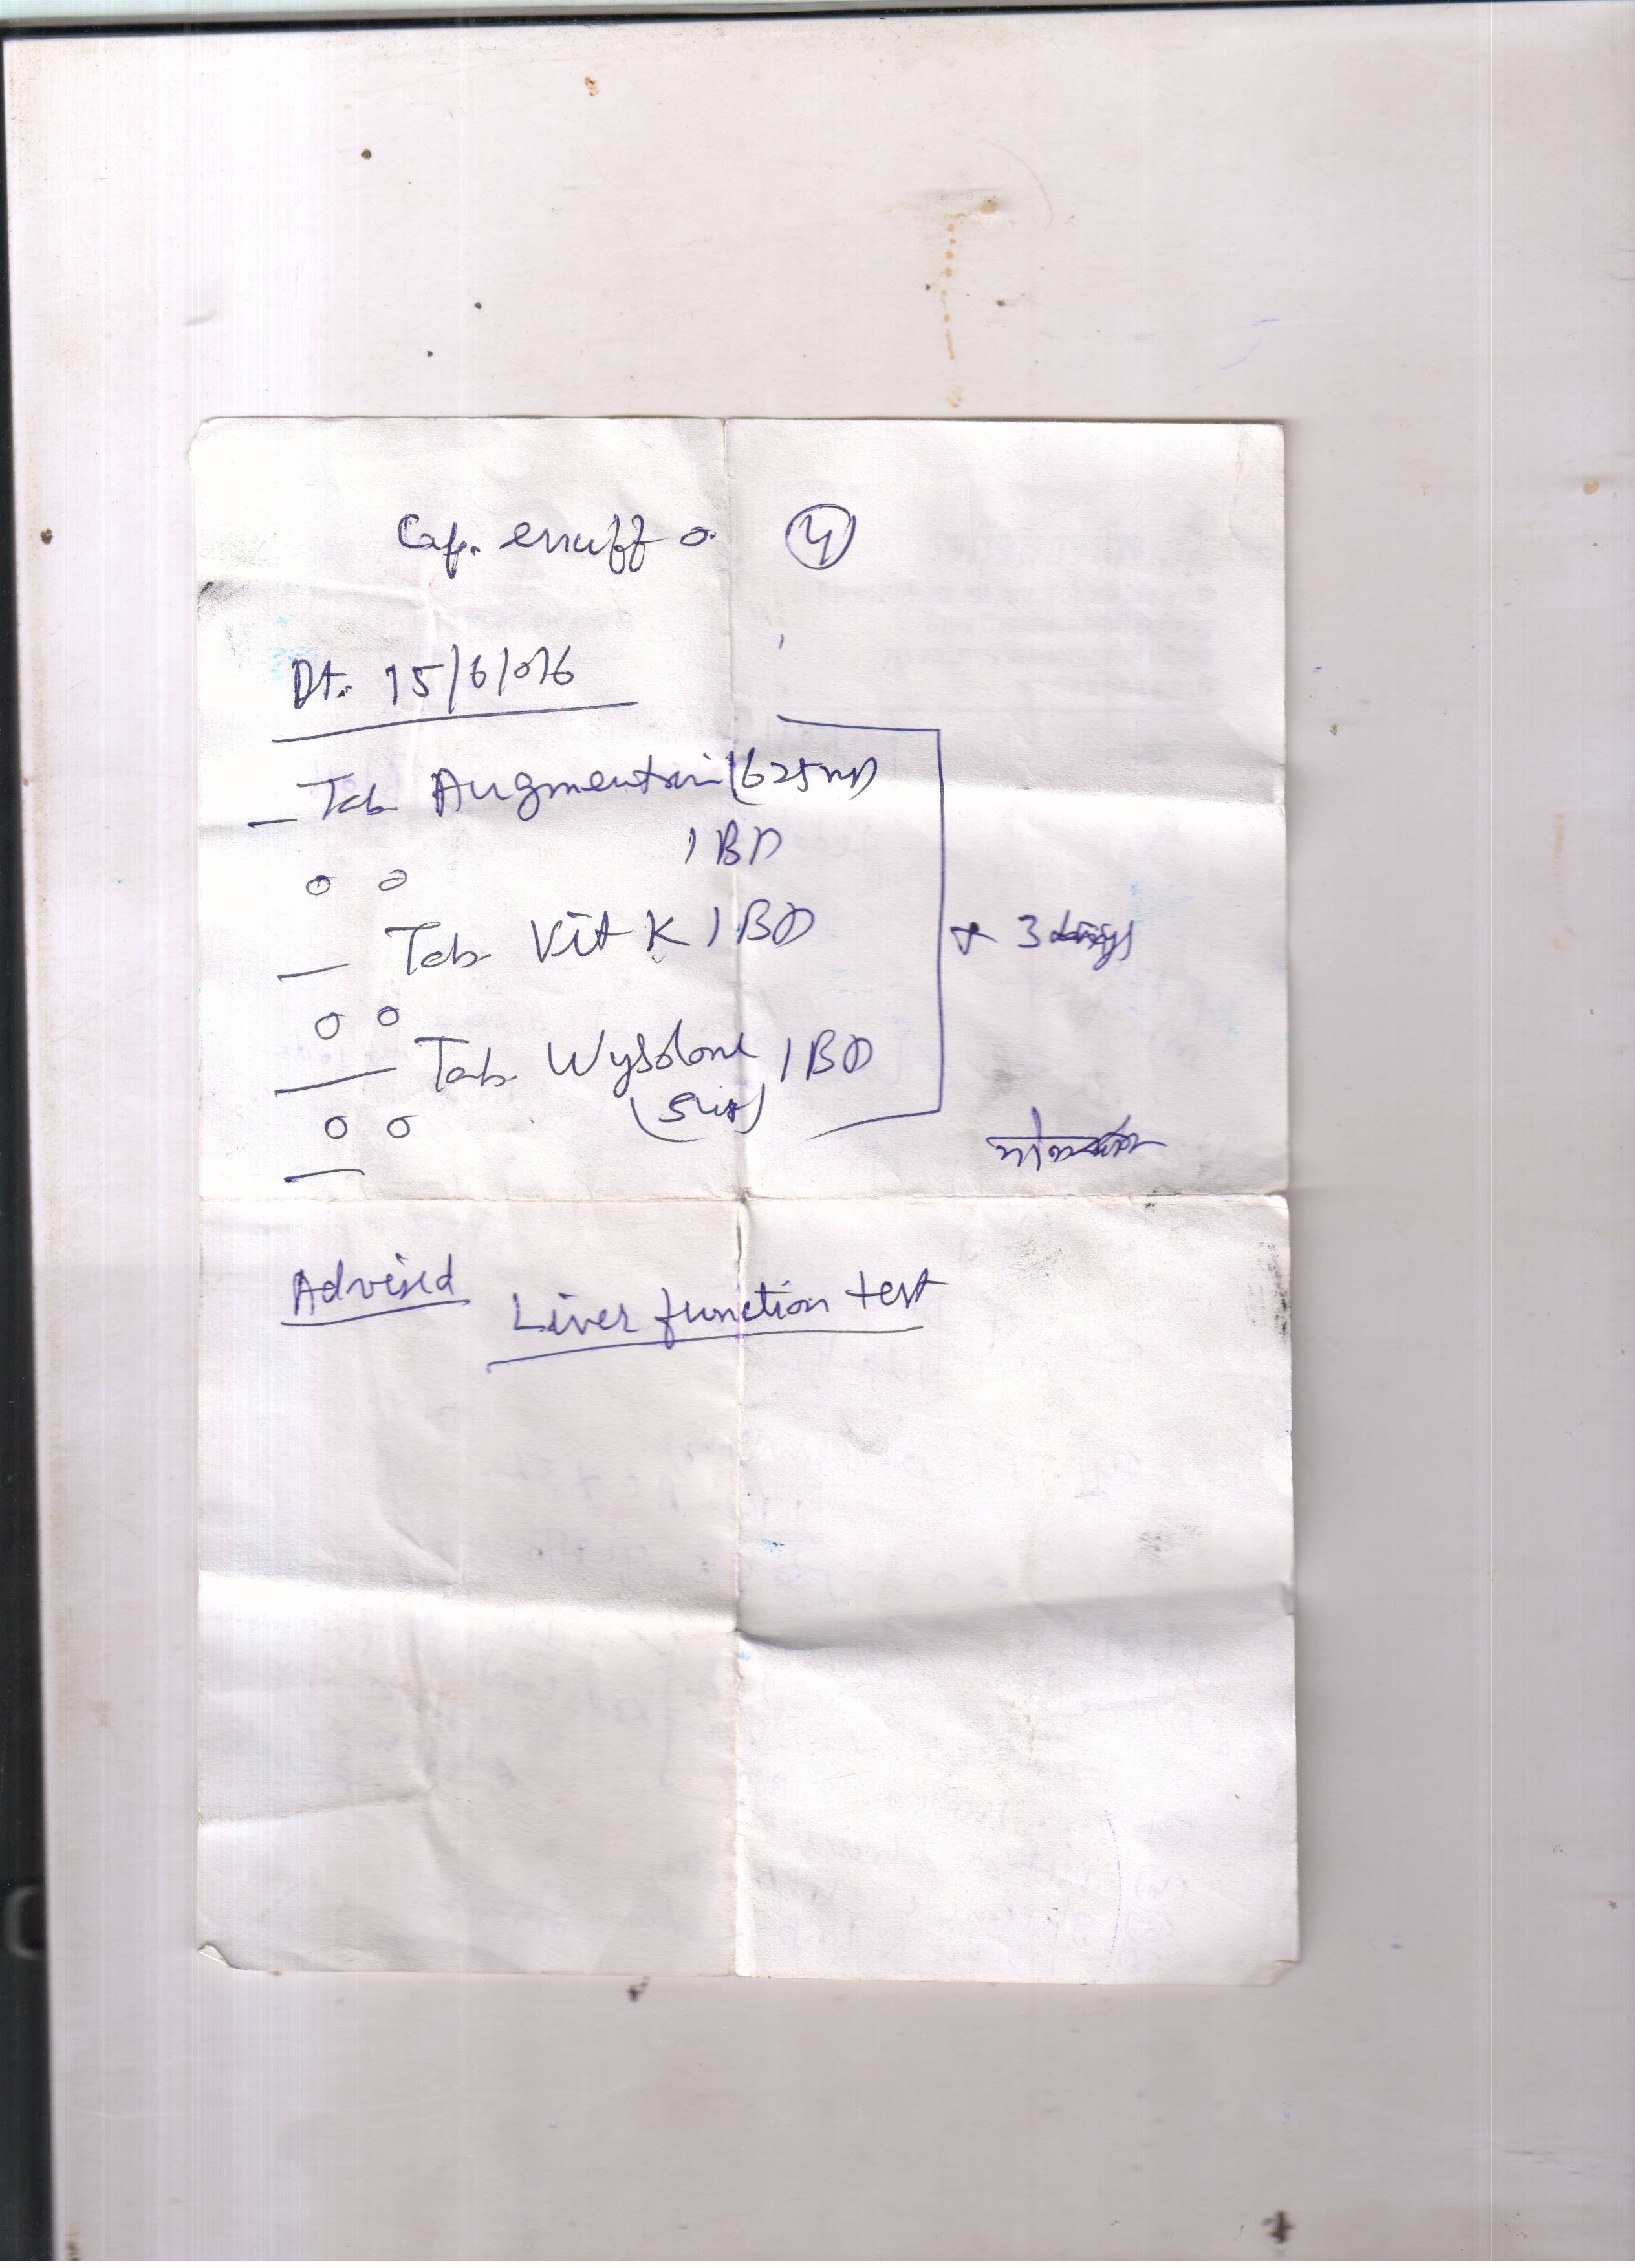 Cap. enuff o. 4
Dt. 15/6/016
Tab Augmentin (625
1 BD
Tab. Vit K 1 BD
x 3 days
Tab. Wysolone 1 BD
Advised Liver function test